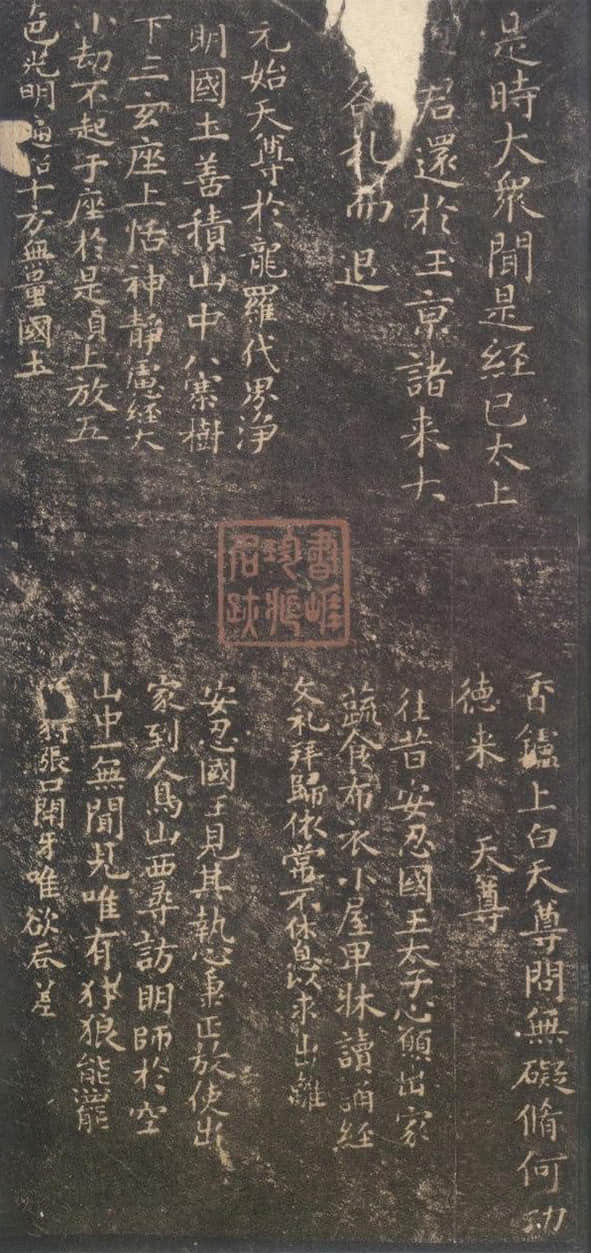 是時大眾聞是經已太上
君還於玉京諸来大
各礼而退
元始天尊於龍羅代界净
明國土善積山中八騫樹
下三玄座上恬神静慮經六
小劫不起于座於是頂上放五
色光明遍十方無量國土
香鑪上白天尊問無礙脩何功
徳来 天尊
往昔安忍國王太子心願出家
蔬食布衣小屋卑牀讀誦經
文礼拜歸依常不休息以求出離
安忍國王見其執心秉正放使出
家到人鳥山西尋訪明師於空
山中一無聞見唯有豺狼能羆
張口開牙唯欲吞